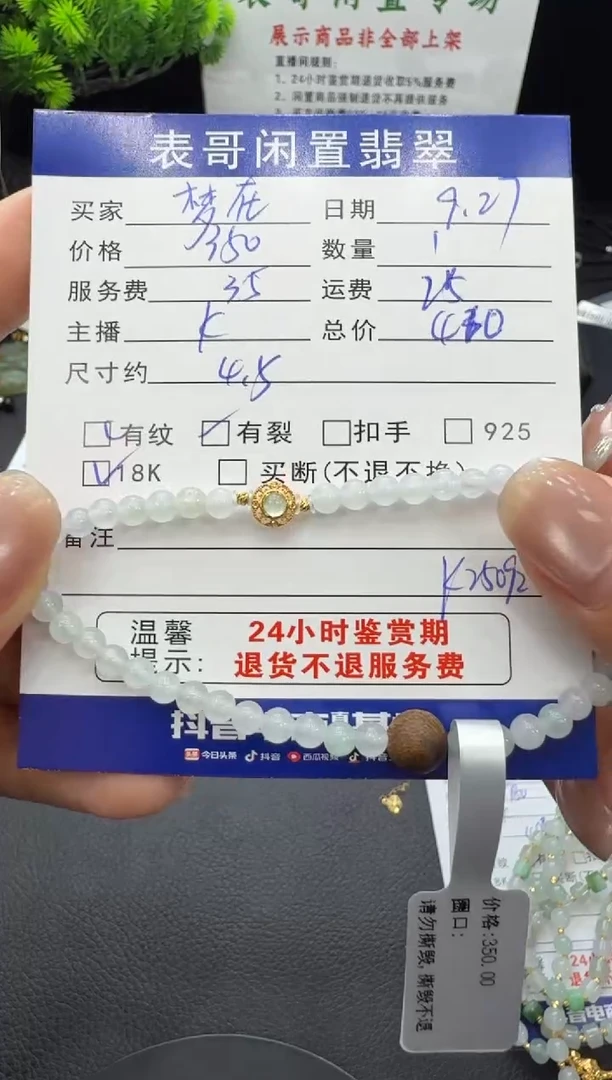 展示商品非全部上架
直播间规则:
1、24小时鉴赏期退货收取5%服务费
2、闲置商品强制退货不再提供服务
表哥闲置翡翠
买家 梦在 日期 9.27
价格 350 数量 1
服务费 35 运费 25
主播 K 总价 410
尺寸约 4.5
有纹 有裂 扣手 925
18K 买断(不退不换)
备注
K25092
温馨 24小时鉴赏期
提示: 退货不退服务费
今日头条 抖音 西瓜视频
价格:350.00
圈口:
请勿撕毁,撕毁不退